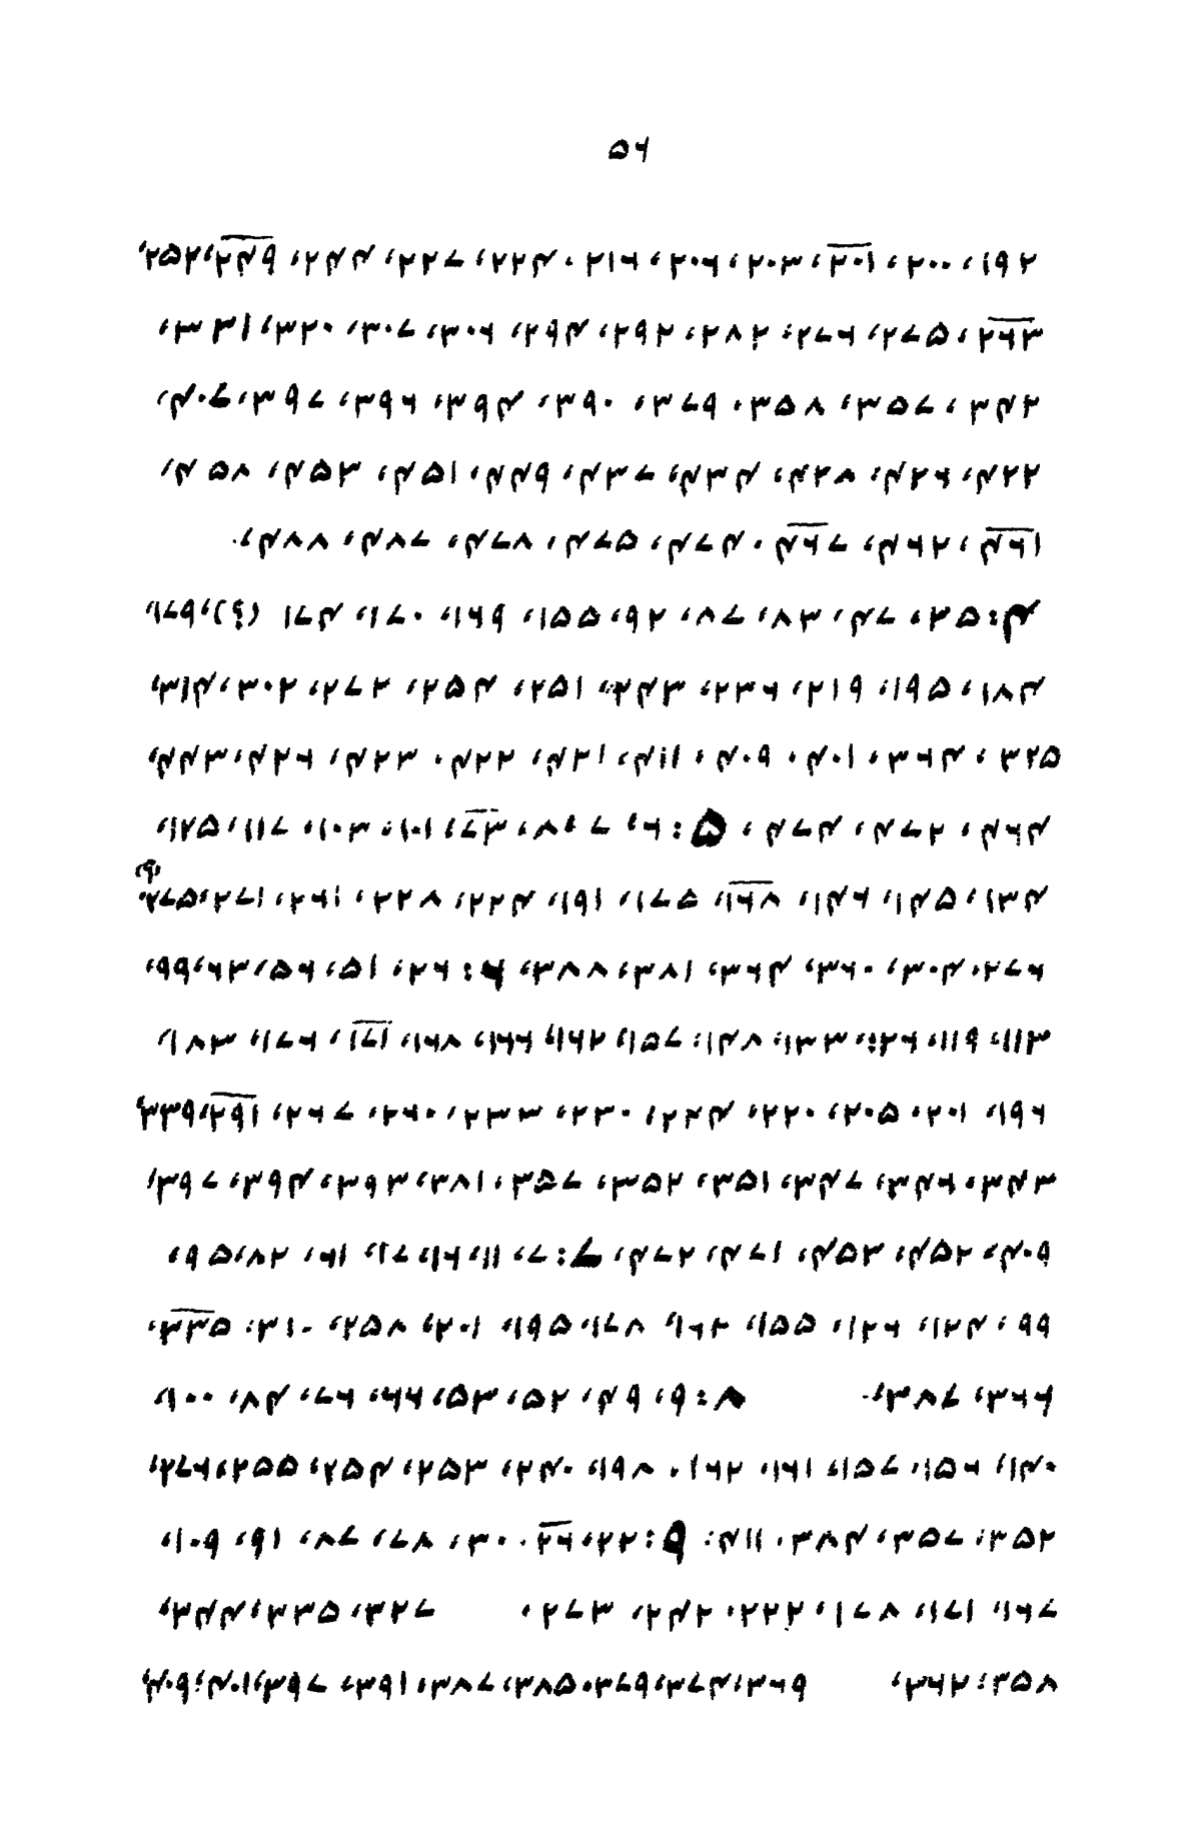 ۵۶
۱۹۲، ۲۰۰، ۲۰۱، ۲۰۳، ۲۰۶، ۲۱۶، ۲۲۴، ۲۲۷، ۲۴۴، ۲۴۹، ۲۵۲،
۲۶۳، ۲۷۵، ۲۷۶، ۲۸۲، ۲۹۲، ۲۹۴، ۳۰۶، ۳۰۷، ۳۲۰، ۳۳۱،
۳۴۲، ۳۵۷، ۳۵۸، ۳۷۹، ۳۹۰، ۳۹۴، ۳۹۶، ۳۹۷،
۴۲۲، ۴۲۶، ۴۲۸، ۴۳۴، ۴۳۷، ۴۴۹، ۴۵۱، ۴۵۳، ۴۵۸،
۴۶۱، ۴۶۲، ۴۶۷، ۴۷۴، ۴۷۵، ۴۷۸، ۴۸۷، ۴۸۸.
۴: ۳۵، ۴۷، ۸۳، ۸۷، ۹۲، ۱۵۵، ۱۶۹، ۱۷۰، ۱۷۴ (؟)، ۱۷۹،
۱۸۴، ۱۹۵، ۲۱۹، ۲۳۶، ۲۴۳، ۲۵۱، ۲۵۴، ۲۷۲، ۳۰۲، ۳۱۴،
۳۲۵، ۳۶۴، ۴۰۱، ۴۰۹، ۴۱۱، ۴۲۱، ۴۲۲، ۴۲۳، ۴۲۶، ۴۴۳،
۴۶۴، ۴۷۲، ۴۷۴، ۵: ۶، ۷، ۸، ۷۳، ۱۰۱، ۱۰۳، ۱۱۷، ۱۲۵،
۱۳۴، ۱۴۵، ۱۴۶، ۱۶۸، ۱۷۵، ۱۹۱، ۲۲۴، ۲۲۸، ۲۶۱، ۲۷۱، ۲۷۵ (؟)
۲۷۶، ۳۰۴، ۳۶۰، ۳۶۴، ۳۸۱، ۳۸۸، ۶: ۲۶، ۵۱، ۵۶، ۶۳، ۹۹،
۱۱۳، ۱۱۹، ۱۲۶، ۱۳۳، ۱۴۸، ۱۵۷، ۱۶۲، ۱۶۶، ۱۶۸، ۱۷۱، ۱۷۶، ۱۸۳،
۱۹۶، ۲۰۱، ۲۰۵، ۲۲۰، ۲۲۴، ۲۳۰، ۲۳۳، ۲۶۰، ۲۶۷، ۲۹۱، ۳۳۹،
۳۴۳، ۳۴۶، ۳۴۷، ۳۵۱، ۳۵۲، ۳۵۷، ۳۸۱، ۳۹۳، ۳۹۴، ۳۹۷،
۴۰۹، ۴۵۲، ۴۵۳، ۴۷۱، ۴۷۲، ۷: ۷، ۱۱، ۱۶، ۱۷، ۶۱، ۸۲، ۹۵،
۹۹، ۱۲۴، ۱۲۶، ۱۵۵، ۱۶۲، ۱۷۸، ۱۹۵، ۲۰۱، ۲۵۸، ۳۱۰، ۳۳۵،
۳۶۶، ۳۸۷. ۸: ۹، ۴۹، ۵۲، ۵۳، ۶۶، ۷۶، ۸۴، ۱۰۰،
۱۴۰، ۱۵۶، ۱۵۷، ۱۶۱، ۱۶۲، ۱۹۸، ۲۴۰، ۲۵۳، ۲۵۴، ۲۵۵، ۲۷۶،
۳۵۲، ۳۵۷، ۳۸۴، ۴۱۱؛ ۹: ۲۲، ۲۶، ۳۰، ۷۸، ۸۷، ۹۱، ۱۰۹،
۱۶۷، ۱۷۱، ۱۷۸، ۲۲۲، ۲۴۲، ۲۷۳، ۳۲۷، ۳۳۵، ۳۴۴،
۳۵۸، ۳۶۲، ۳۶۹، ۳۷۴، ۳۷۹، ۳۸۵، ۳۸۷، ۳۹۱، ۳۹۷، ۴۰۱، ۴۰۹،